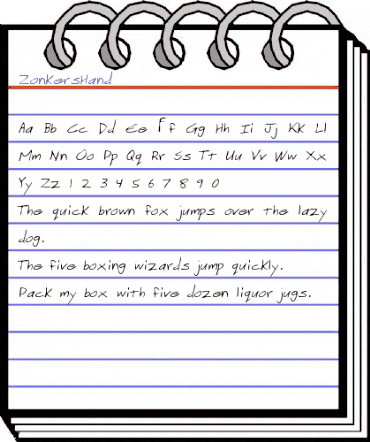 ZonkersHand
Aa Bb Cc Dd Ee Ff Gg Hh Ii Jj Kk Ll
Mm Nn Oo Pp Qq Rr Ss Tt Uu Vv Ww Xx
Yy Zz 1 2 3 4 5 6 7 8 9 0
The quick brown fox jumps over the lazy
dog.
The five boxing wizards jump quickly.
Pack my box with five dozen liquor jugs.